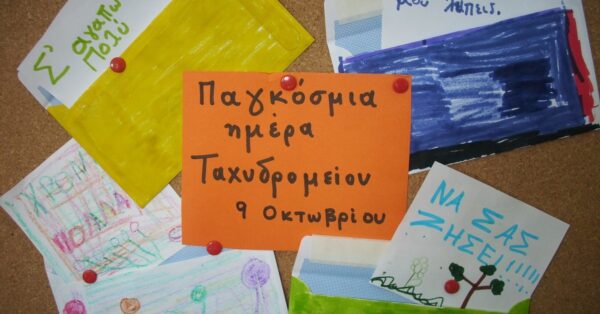 Σ' αγαπώ
Πολύ
μου λείπεις.
Παγκόσμια
ημέρα
Ταχυδρομείου
9 Οκτωβρίου
ΝΑ ΣΑΣ
ΖΗΣΕΙ!!!!!